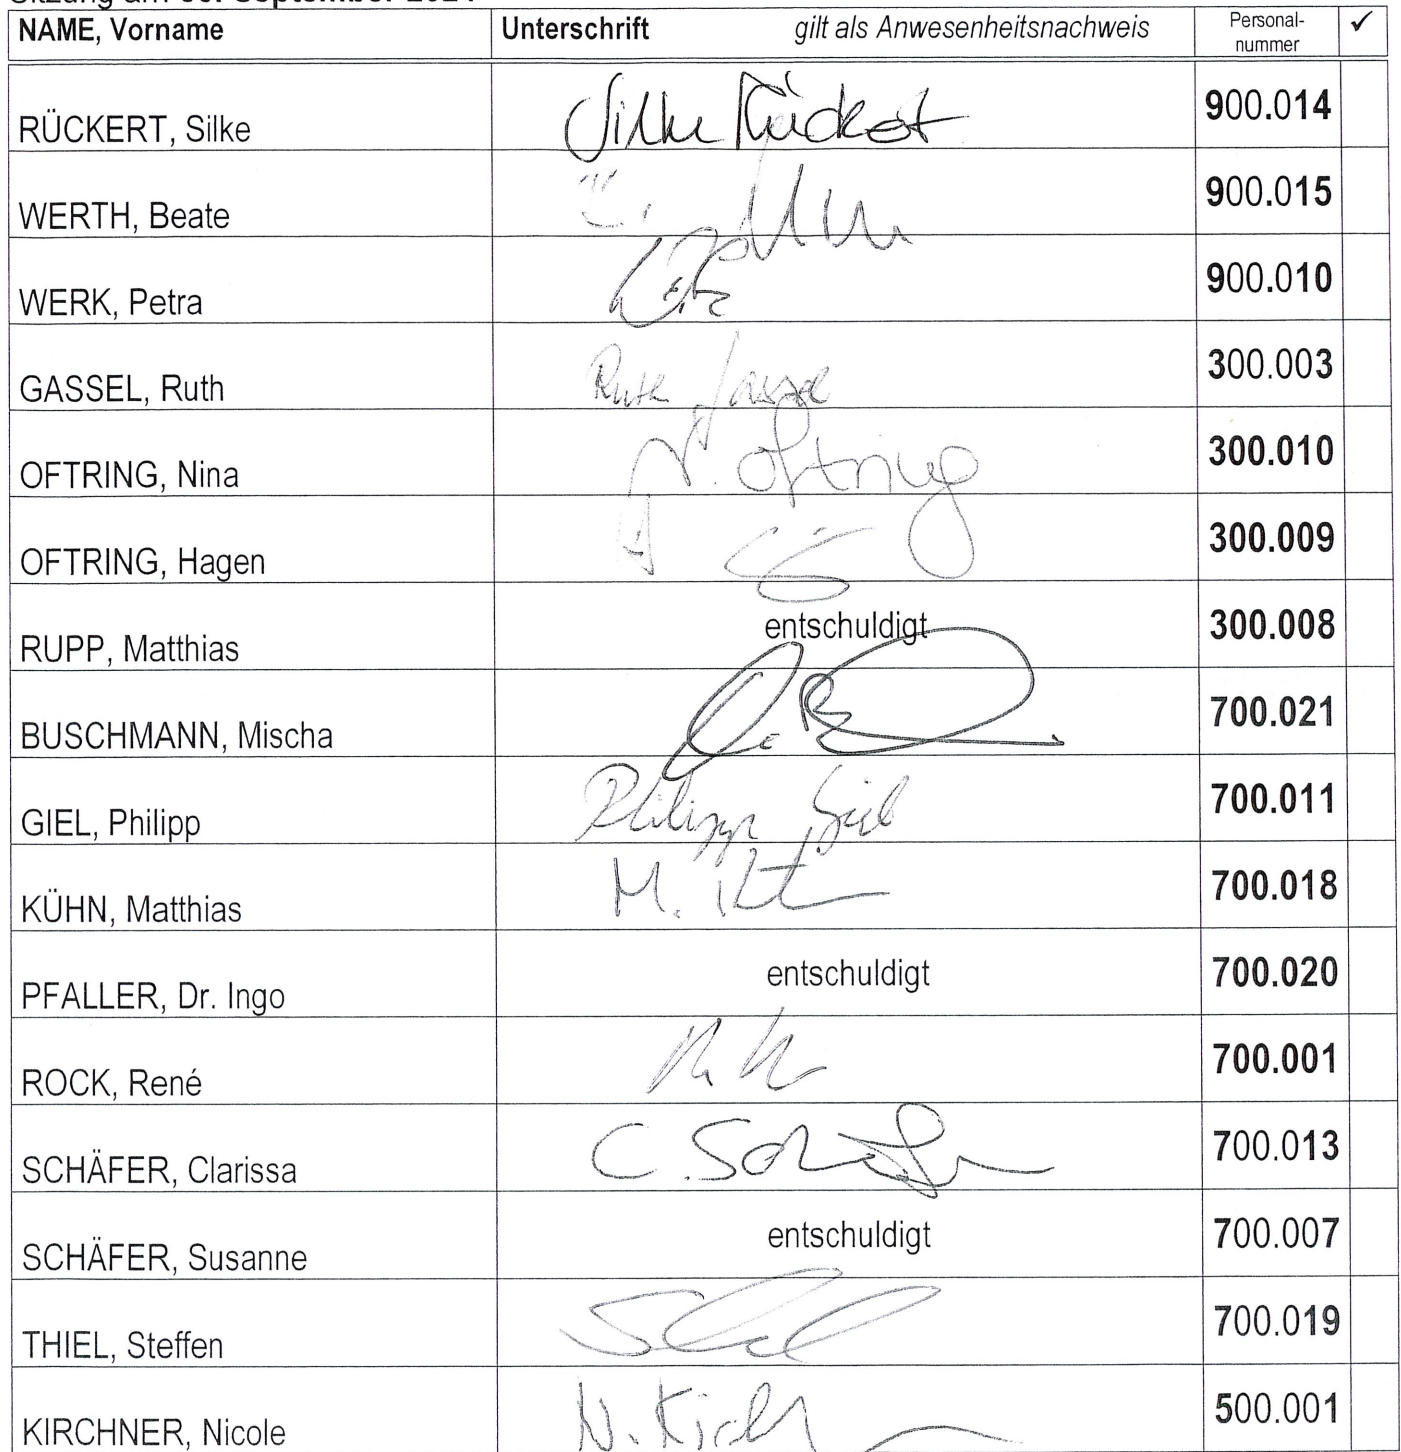 NAME, Vorname Unterschrift gilt als Anwesenheitsnachweis Personal-nummer ✓
RÜCKERT, Silke Silke Rückert 900.014
WERTH, Beate 900.015
WERK, Petra 900.010
GASSEL, Ruth Ruth Gassel 300.003
OFTRING, Nina N. Oftring 300.010
OFTRING, Hagen 300.009
RUPP, Matthias entschuldigt 300.008
BUSCHMANN, Mischa 700.021
GIEL, Philipp Philipp Giel 700.011
KÜHN, Matthias M. 700.018
PFALLER, Dr. Ingo entschuldigt 700.020
ROCK, René 700.001
SCHÄFER, Clarissa C. Schäfer 700.013
SCHÄFER, Susanne entschuldigt 700.007
THIEL, Steffen 700.019
KIRCHNER, Nicole N. 500.001